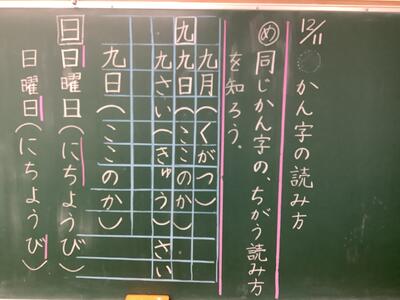 12/11 かん字の読み方
め 同じかん字の、ちがう読み方
を知ろう。
九 九月(くがつ)
九日(ここのか)
九さい(きゅう)さい
九日(ここのか)
日 日曜日(にちようび)
日曜日(にちようび)